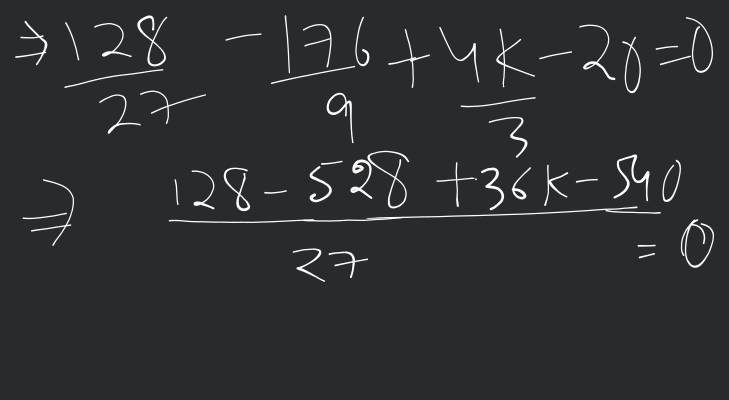 ⇒ 128/27 - 176/9 + 4k/3 - 20 = 0
⇒ (128 - 528 + 36k - 540)/27 = 0